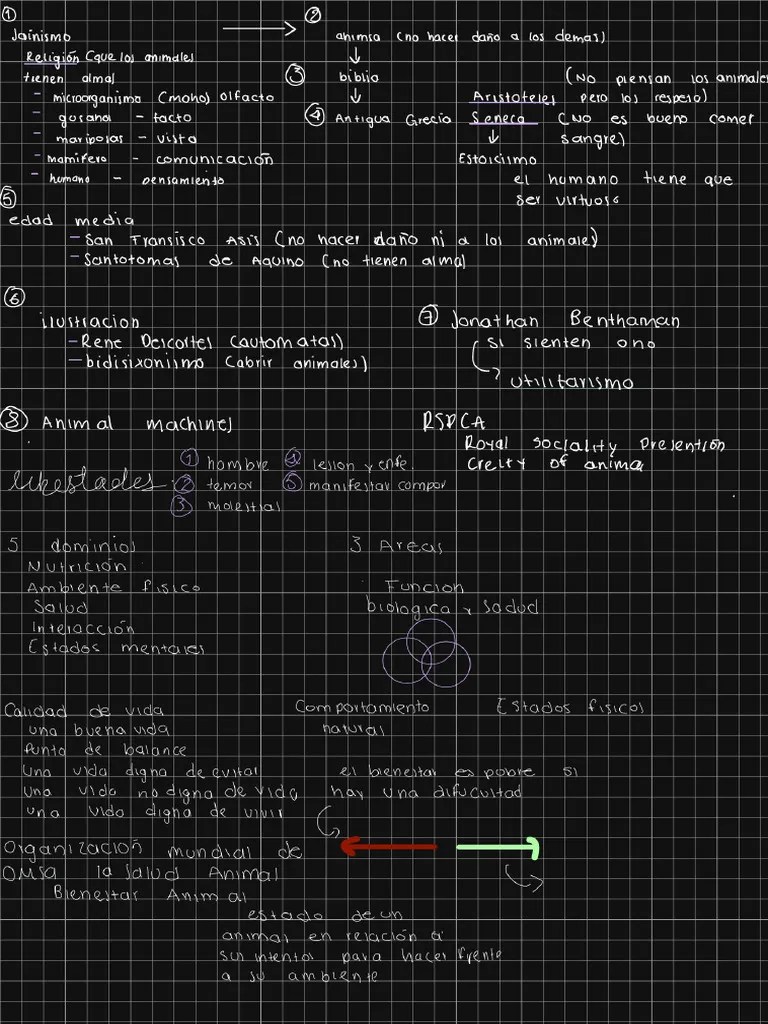 ①
Jainismo
Religión (que los animales
tienen alma)
- microorganismo (moho) olfato
- gusano - tacto
- mariposas - vista
- mamifero - comunicación
- humano - pensamiento
②
animsa (no hacer daño a los demas)
③ biblia
④ Antigua Grecia
Aristoteles (No piensan los animales
pero los respeto)
Seneca (No es bueno comer
sangre)
Estoicismo
el humano tiene que
ser virtuoso
⑤
edad media
- San Fransisco Asis (no hacer daño ni a los animales)
- Santotomas de Aquino (no tienen alma)
⑥
ilustracion
- Rene Descortes (automatas)
- bidisixoniismo (abrir animales)
⑦ Jonathan Benthaman
si sienten ono
utilitarismo
⑧ Animal machines
RSPCA
Royal sociality presention
crelty of anima
① hombre ④ lesion y enfe.
② temor ⑤ manifestar compor
③ molestias
5 dominios
Nutrición
Ambiente fisico
Salud
Interacción
Estados mentales
3 Areas
Funcion
biologica y salud
Comportamiento
natural
Estados fisicos
Calidad de vida
una buena vida
Punto de balance
Una vida digna de evitar
una vida no digna de vida
una vida digna de vivir
el bienestar es pobre si
hay una dificultad
Organización mundial de
OMSA la salud Animal
Bienestar Animal
estado de un
animal en relación a
sus intentos para hacer frente
a su ambiente